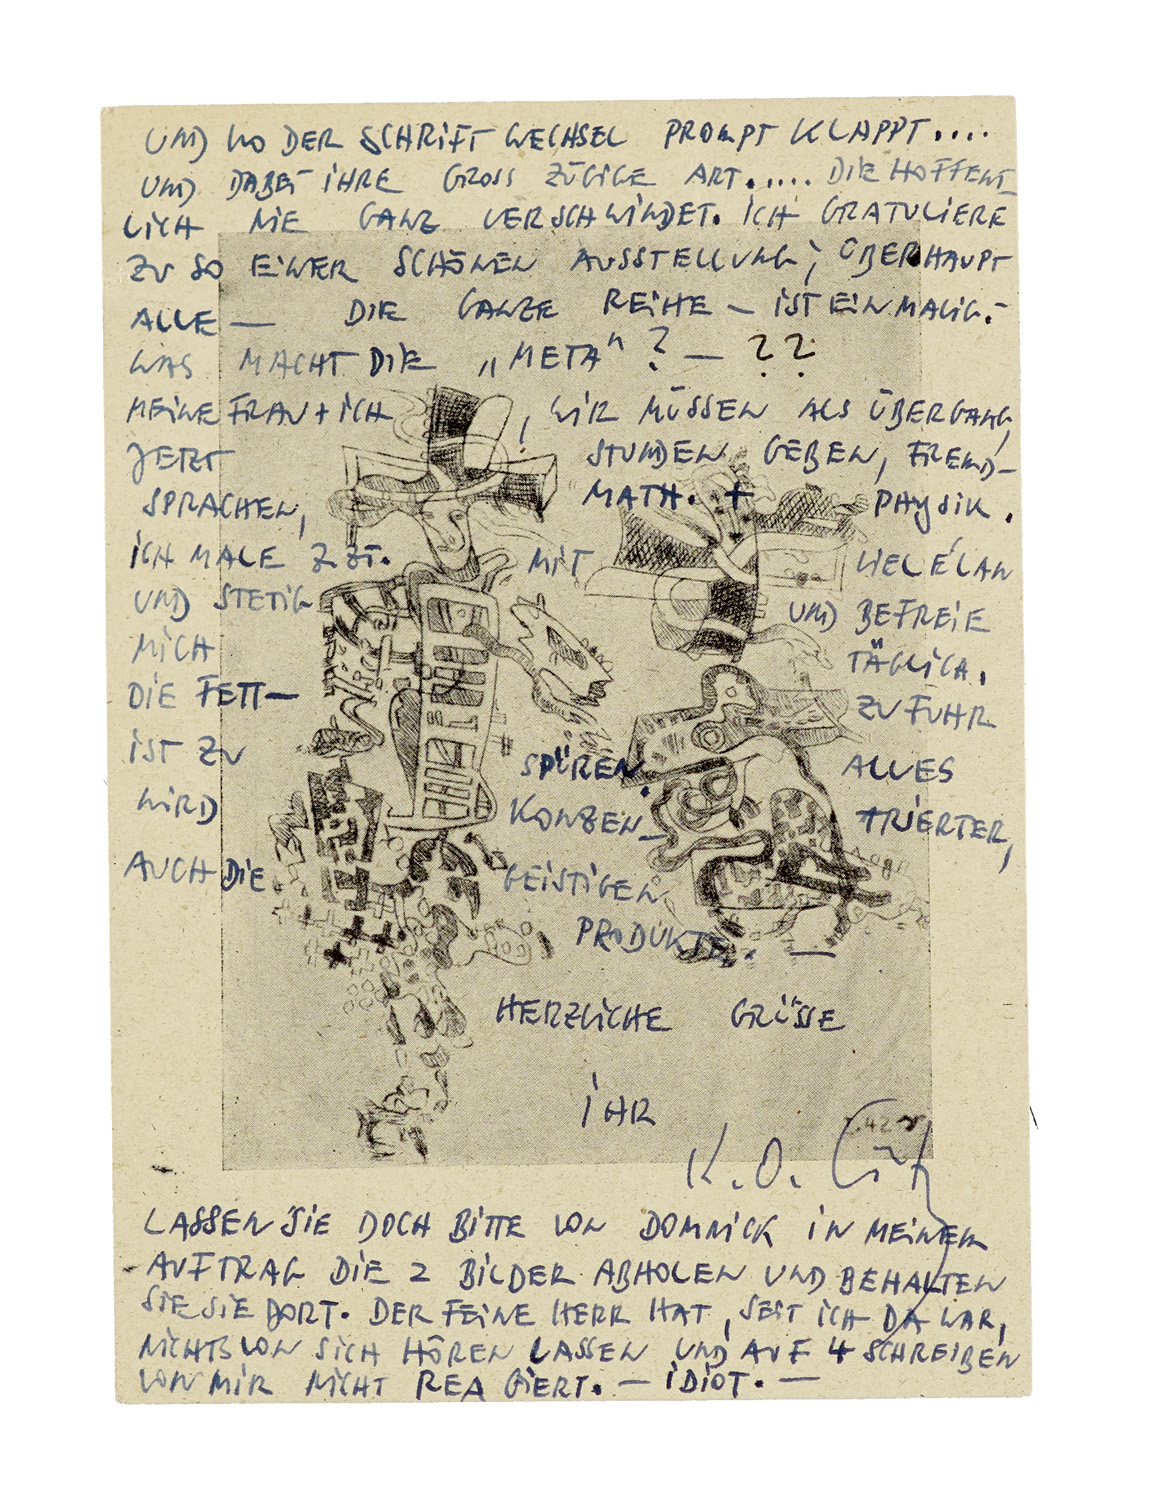 UND WO DER SCHRIFTWECHSEL PROMPT KLAPPT....
UND DABEI IHRE GROSSZÜGIGE ART..... DIE HOFFENT-
LICH NIE GANZ VERSCHWINDET. ICH GRATULIERE
ZU SO EINER SCHÖNEN AUSSTELLUNG; ÜBERHAUPT
ALLE — DIE GANZE REIHE — IST EINMALIG.-
WAS MACHT DIE „META“? — ??
MEINE FRAU + ICH, WIR MÜSSEN ALS ÜBERGANG,
JETZT STUNDEN GEBEN, FREMD-
SPRACHEN, MATH. + PHYSIK.
ICH MALE Z. ZT. MIT VIEL ÉLAN
UND STETIG UND BEFREIE
MICH TÄGLICH.
DIE FETT— ZUFUHR
IST ZU SPÜREN. ALLES
WIRD KONZEN— TRIERTER,
AUCH DIE GEISTIGEN
PRODUKTE. —
HERZLICHE GRÜSSE
IHR
K. O. Götz
LASSEN SIE DOCH BITTE VON DOMNICK IN MEINEM
AUFTRAG DIE 2 BILDER ABHOLEN UND BEHALTEN
SIE SIE DORT. DER FEINE HERR HAT, SEIT ICH DA WAR,
NICHTS VON SICH HÖREN LASSEN UND AUF 4 SCHREIBEN
VON MIR NICHT REAGIERT. — IDIOT. —